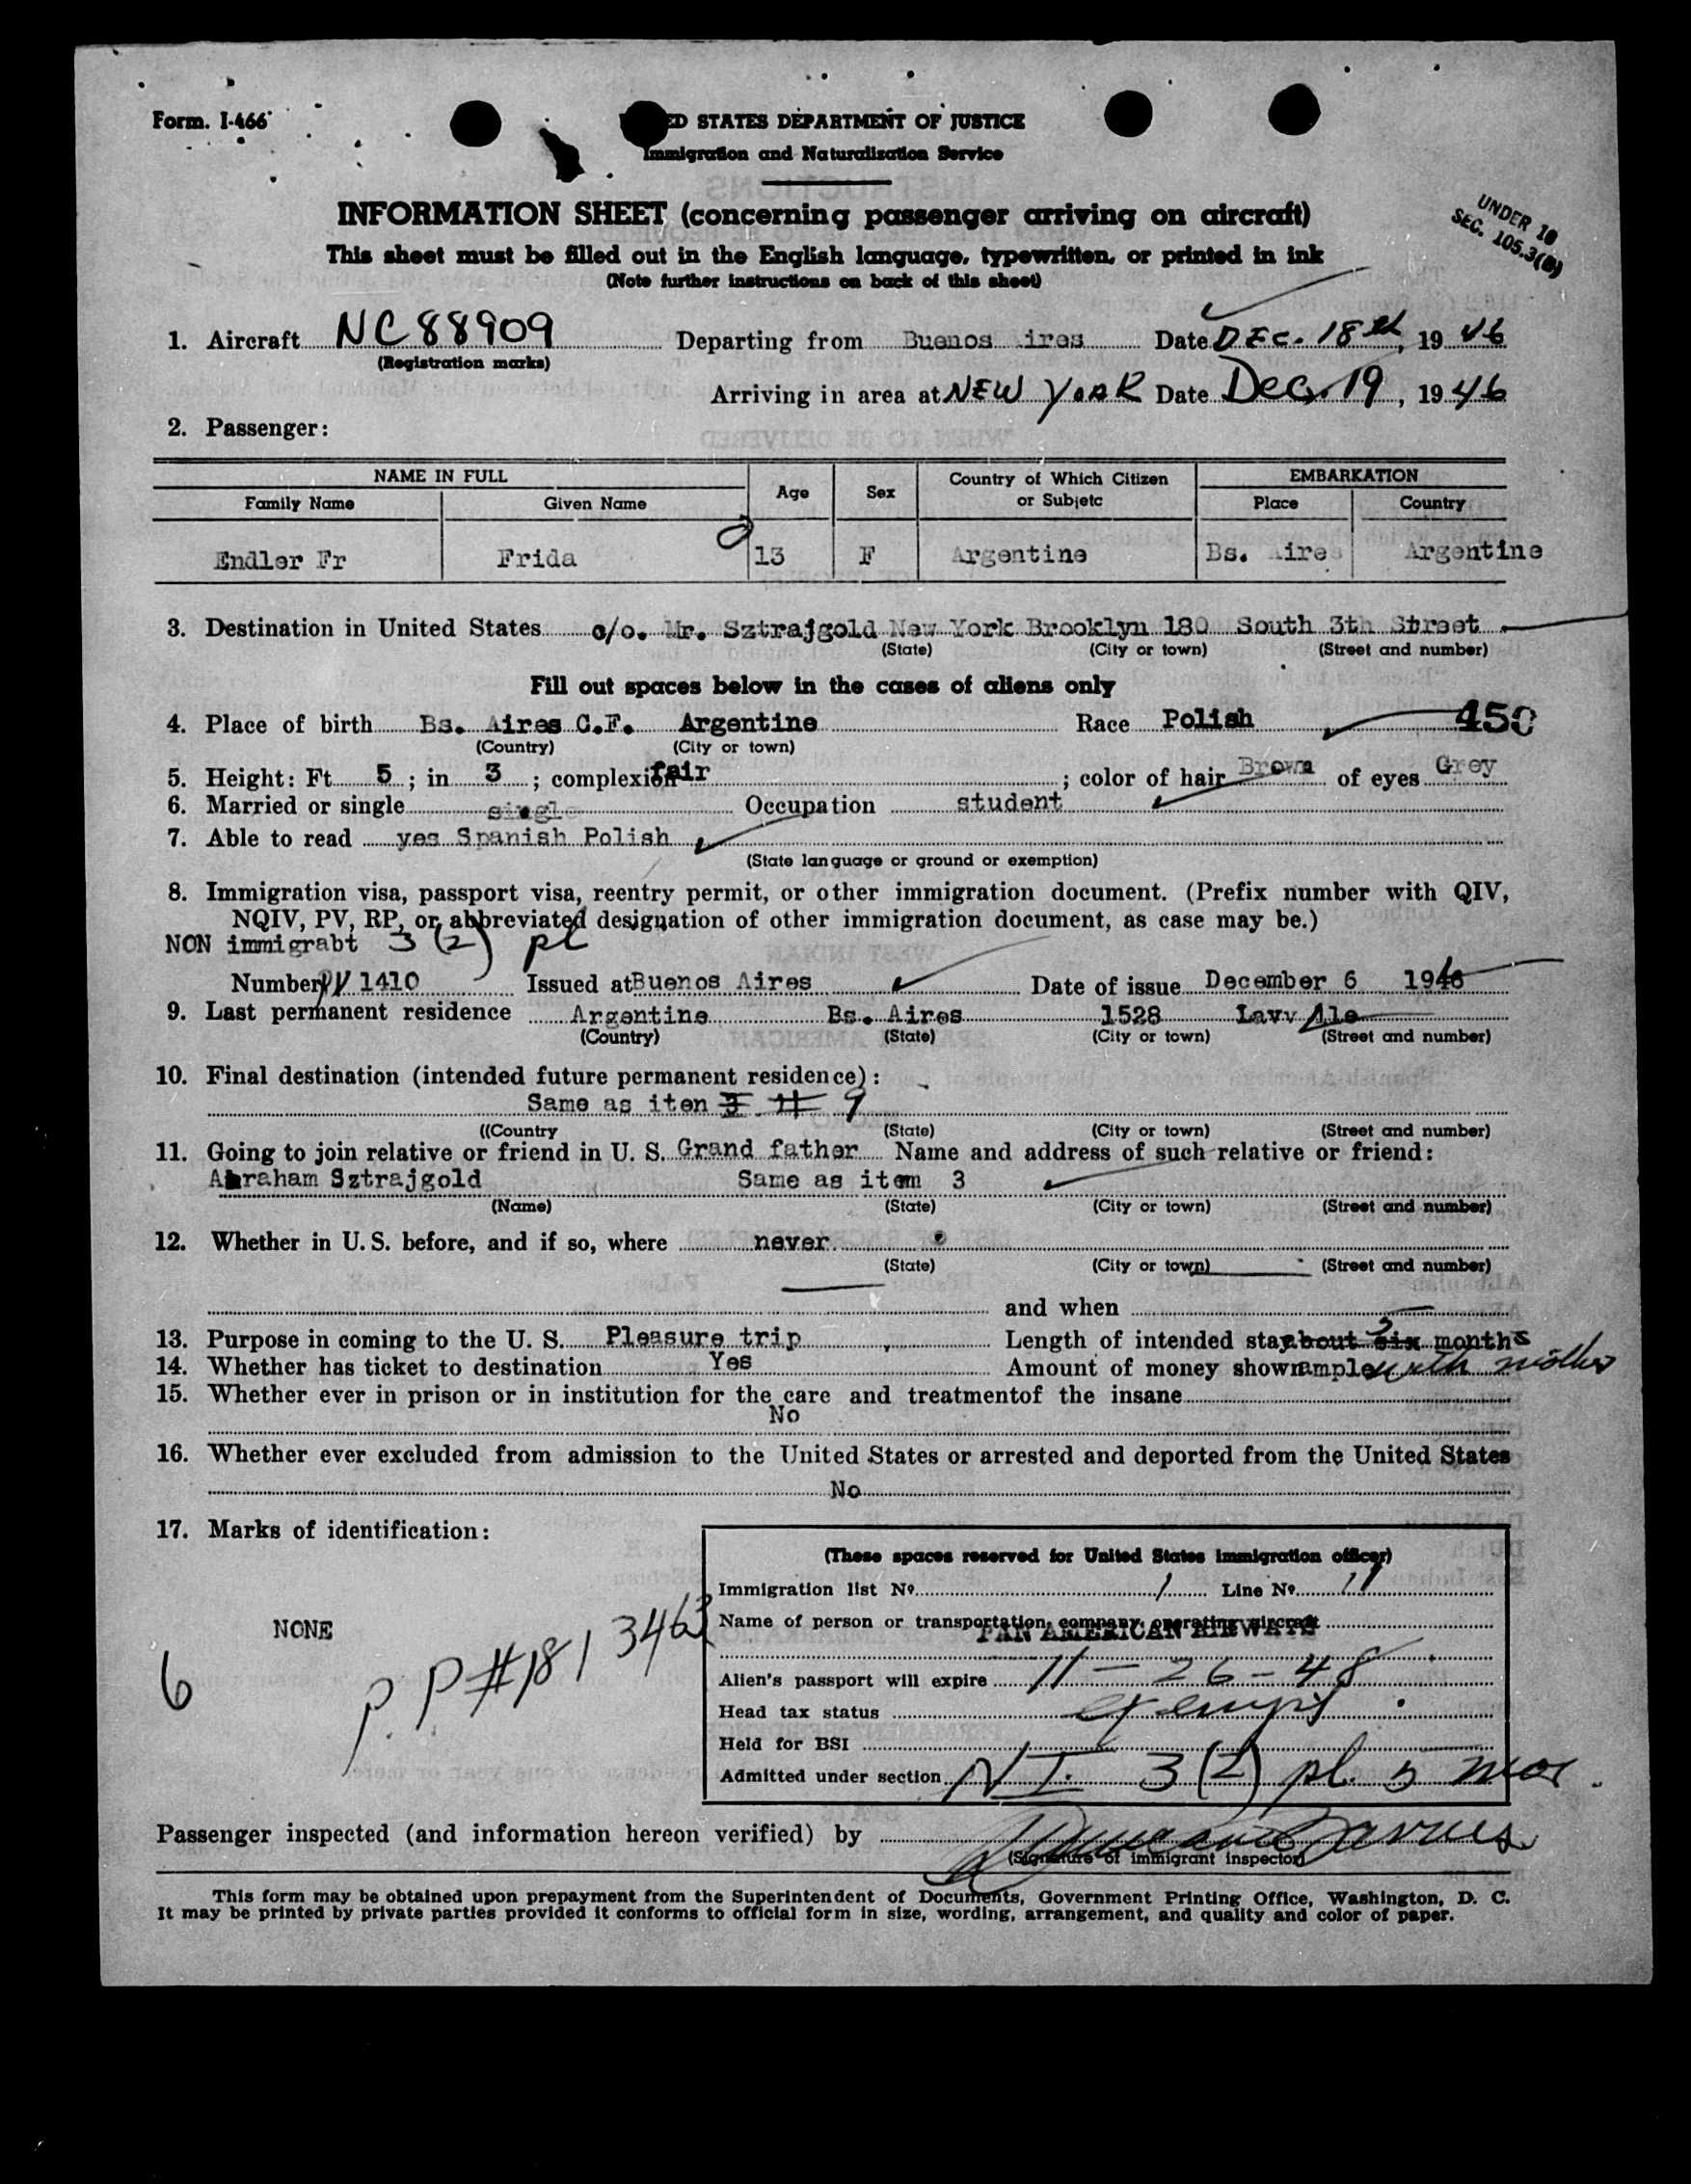 Form. I-466
ED STATES DEPARTMENT OF JUSTICE
Immigration and Naturalization Service
INFORMATION SHEET (concerning passenger arriving on aircraft)
UNDER 18
SEC. 105.3(B)
This sheet must be filled out in the English language, typewritten, or printed in ink
(Note further instructions on back of this sheet)
1. Aircraft NC88909 Departing from Buenos ires Date DEC. 18th, 19 46
(Registration marks)
Arriving in area at NEW YORK Date Dec. 19, 19 46
2. Passenger:
NAME IN FULL Age Sex Country of Which Citizen or Subjetc EMBARKATION
Family Name Given Name Place Country
Endler Fr Frida 13 F Argentine Bs. Aires Argentine
3. Destination in United States c/o. Mr. Sztrajgold New York Brooklyn 180 South 3th Street
(State) (City or town) (Street and number)
Fill out spaces below in the cases of aliens only
4. Place of birth Bs. Aires C.F. Argentine Race Polish 450
(Country) (City or town)
5. Height: Ft 5 ; in 3 ; complexion fair ; color of hair Brown of eyes Grey
6. Married or single single Occupation student
7. Able to read yes Spanish Polish
(State language or ground or exemption)
8. Immigration visa, passport visa, reentry permit, or other immigration document. (Prefix number with QIV,
NQIV, PV, RP, or abbreviated designation of other immigration document, as case may be.)
NON immigrabt 3 (2) pl
Number PV 1410 Issued at Buenos Aires Date of issue December 6 1946
9. Last permanent residence Argentine Bs. Aires 1528 Lavv Ale
(Country) (State) (City or town) (Street and number)
10. Final destination (intended future permanent residence):
Same as iten 3 # 9
((Country (State) (City or town) (Street and number)
11. Going to join relative or friend in U. S. Grand father Name and address of such relative or friend:
Abraham Sztrajgold Same as item 3
(Name) (State) (City or town) (Street and number)
12. Whether in U. S. before, and if so, where never
(State) (City or town) (Street and number)
and when
13. Purpose in coming to the U. S. Pleasure trip Length of intended stay about six 5 months
14. Whether has ticket to destination Yes Amount of money shown ample with mother
15. Whether ever in prison or in institution for the care and treatmentof the insane
No
16. Whether ever excluded from admission to the United States or arrested and deported from the United States
No
17. Marks of identification:
NONE
6
P.P # 1813463
(These spaces reserved for United States immigration officer)
Immigration list Nº 1 Line Nº 11
Name of person or transportation company operating aircraft
PAN AMERICAN AIRWAYS
Alien's passport will expire 11 - 26 - 48
Head tax status exempt
Held for BSI
Admitted under section NI 3 (2) pl. 5 mos.
Passenger inspected (and information hereon verified) by
(Signature of immigrant inspector)
This form may be obtained upon prepayment from the Superintendent of Documents, Government Printing Office, Washington, D. C.
It may be printed by private parties provided it conforms to official form in size, wording, arrangement, and quality and color of paper.